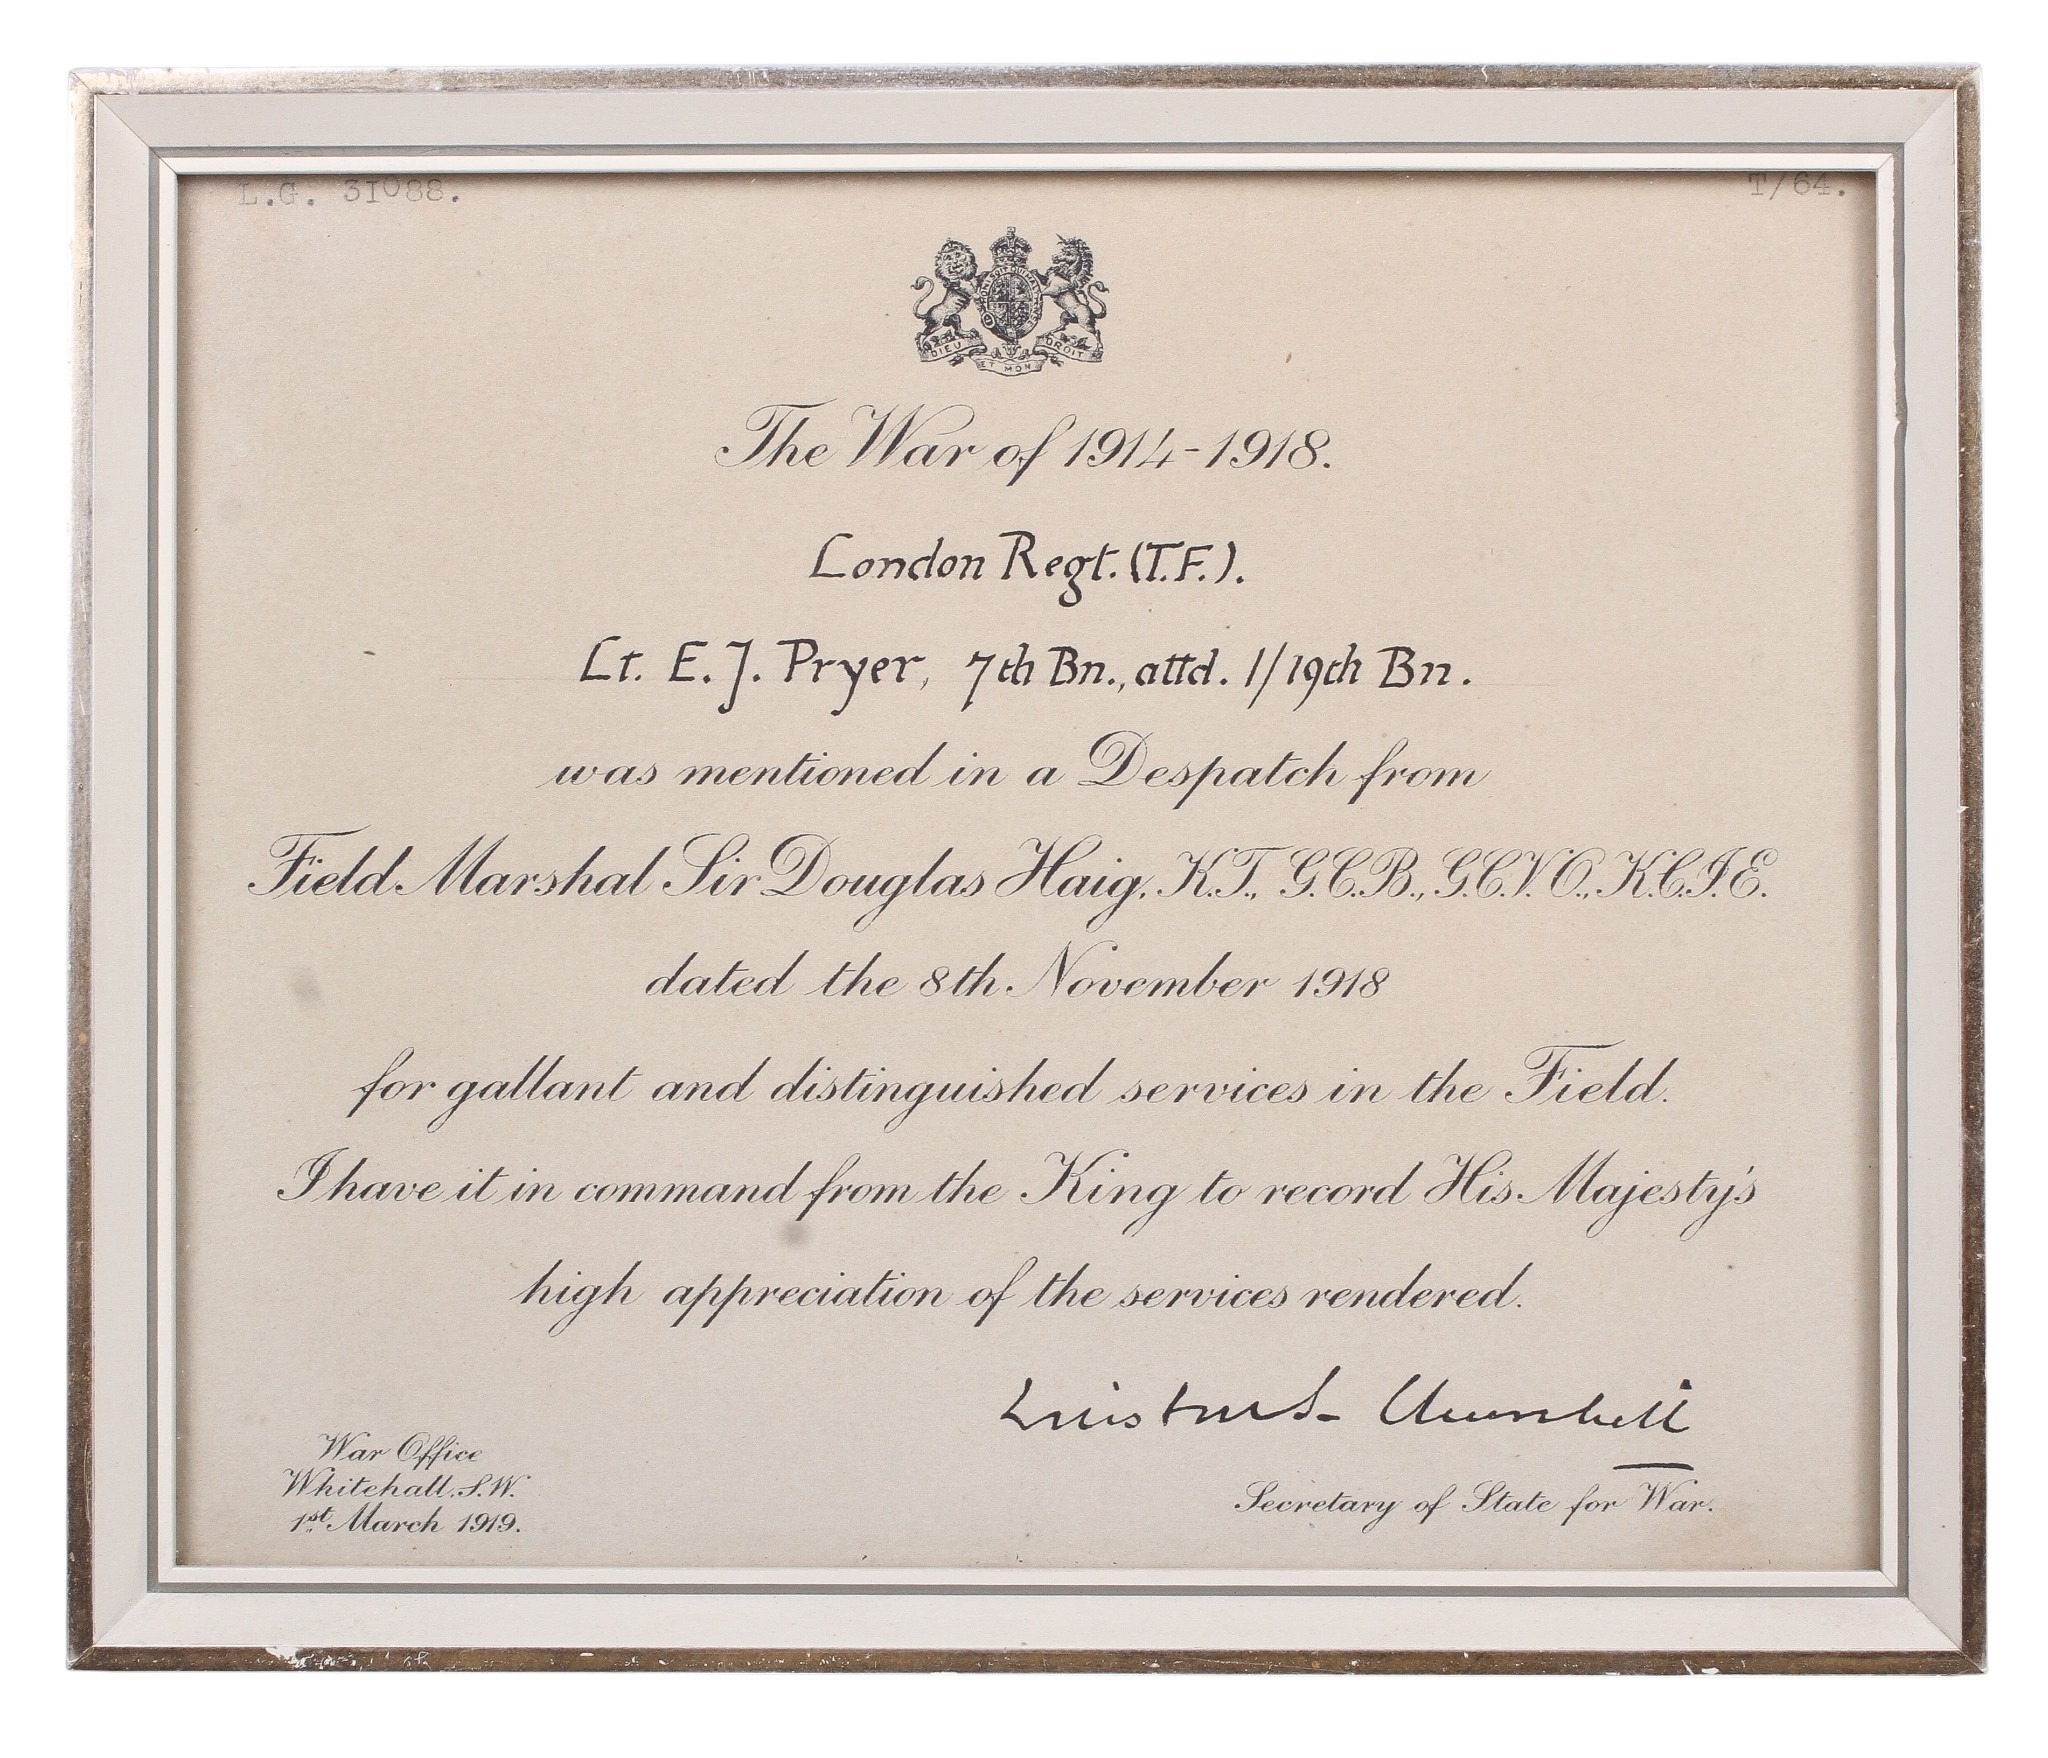 L.G. 31088.
T/64.
HONI SOIT QUI MAL Y PENSE
DIEU ET MON DROIT
The War of 1914-1918.
London Regt. (T.F.).
Lt. E. J. Pryer, 7th Bn., attd. 1/19th Bn.
was mentioned in a Despatch from
Field Marshal Sir Douglas Haig, K.T., G.C.B., G.C.V.O., K.C.I.E.
dated the 8th November 1918
for gallant and distinguished services in the Field.
I have it in command from the King to record His Majesty's
high appreciation of the services rendered.
Winston S. Churchill
War Office
Whitehall, S.W.
1st March 1919.
Secretary of State for War.